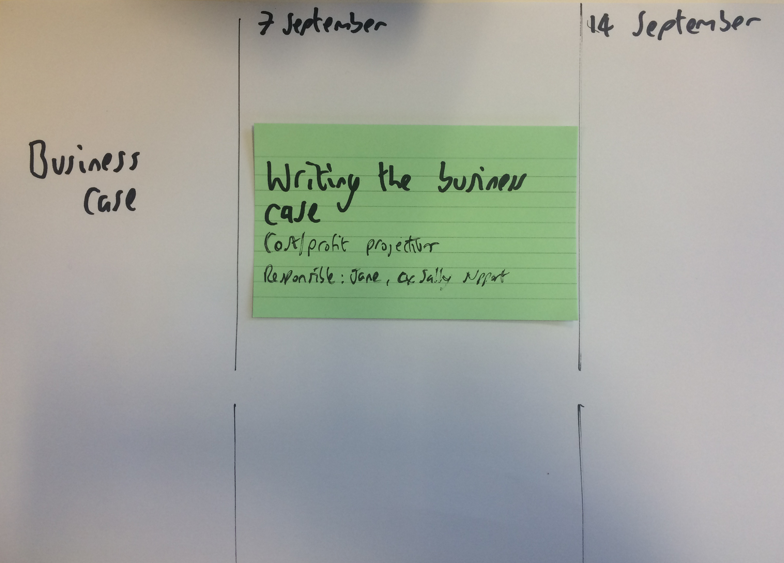 7 September
14 September
Business
Case
Writing the business
case
Cost/profit projection
Responsible: Jane, Sally support